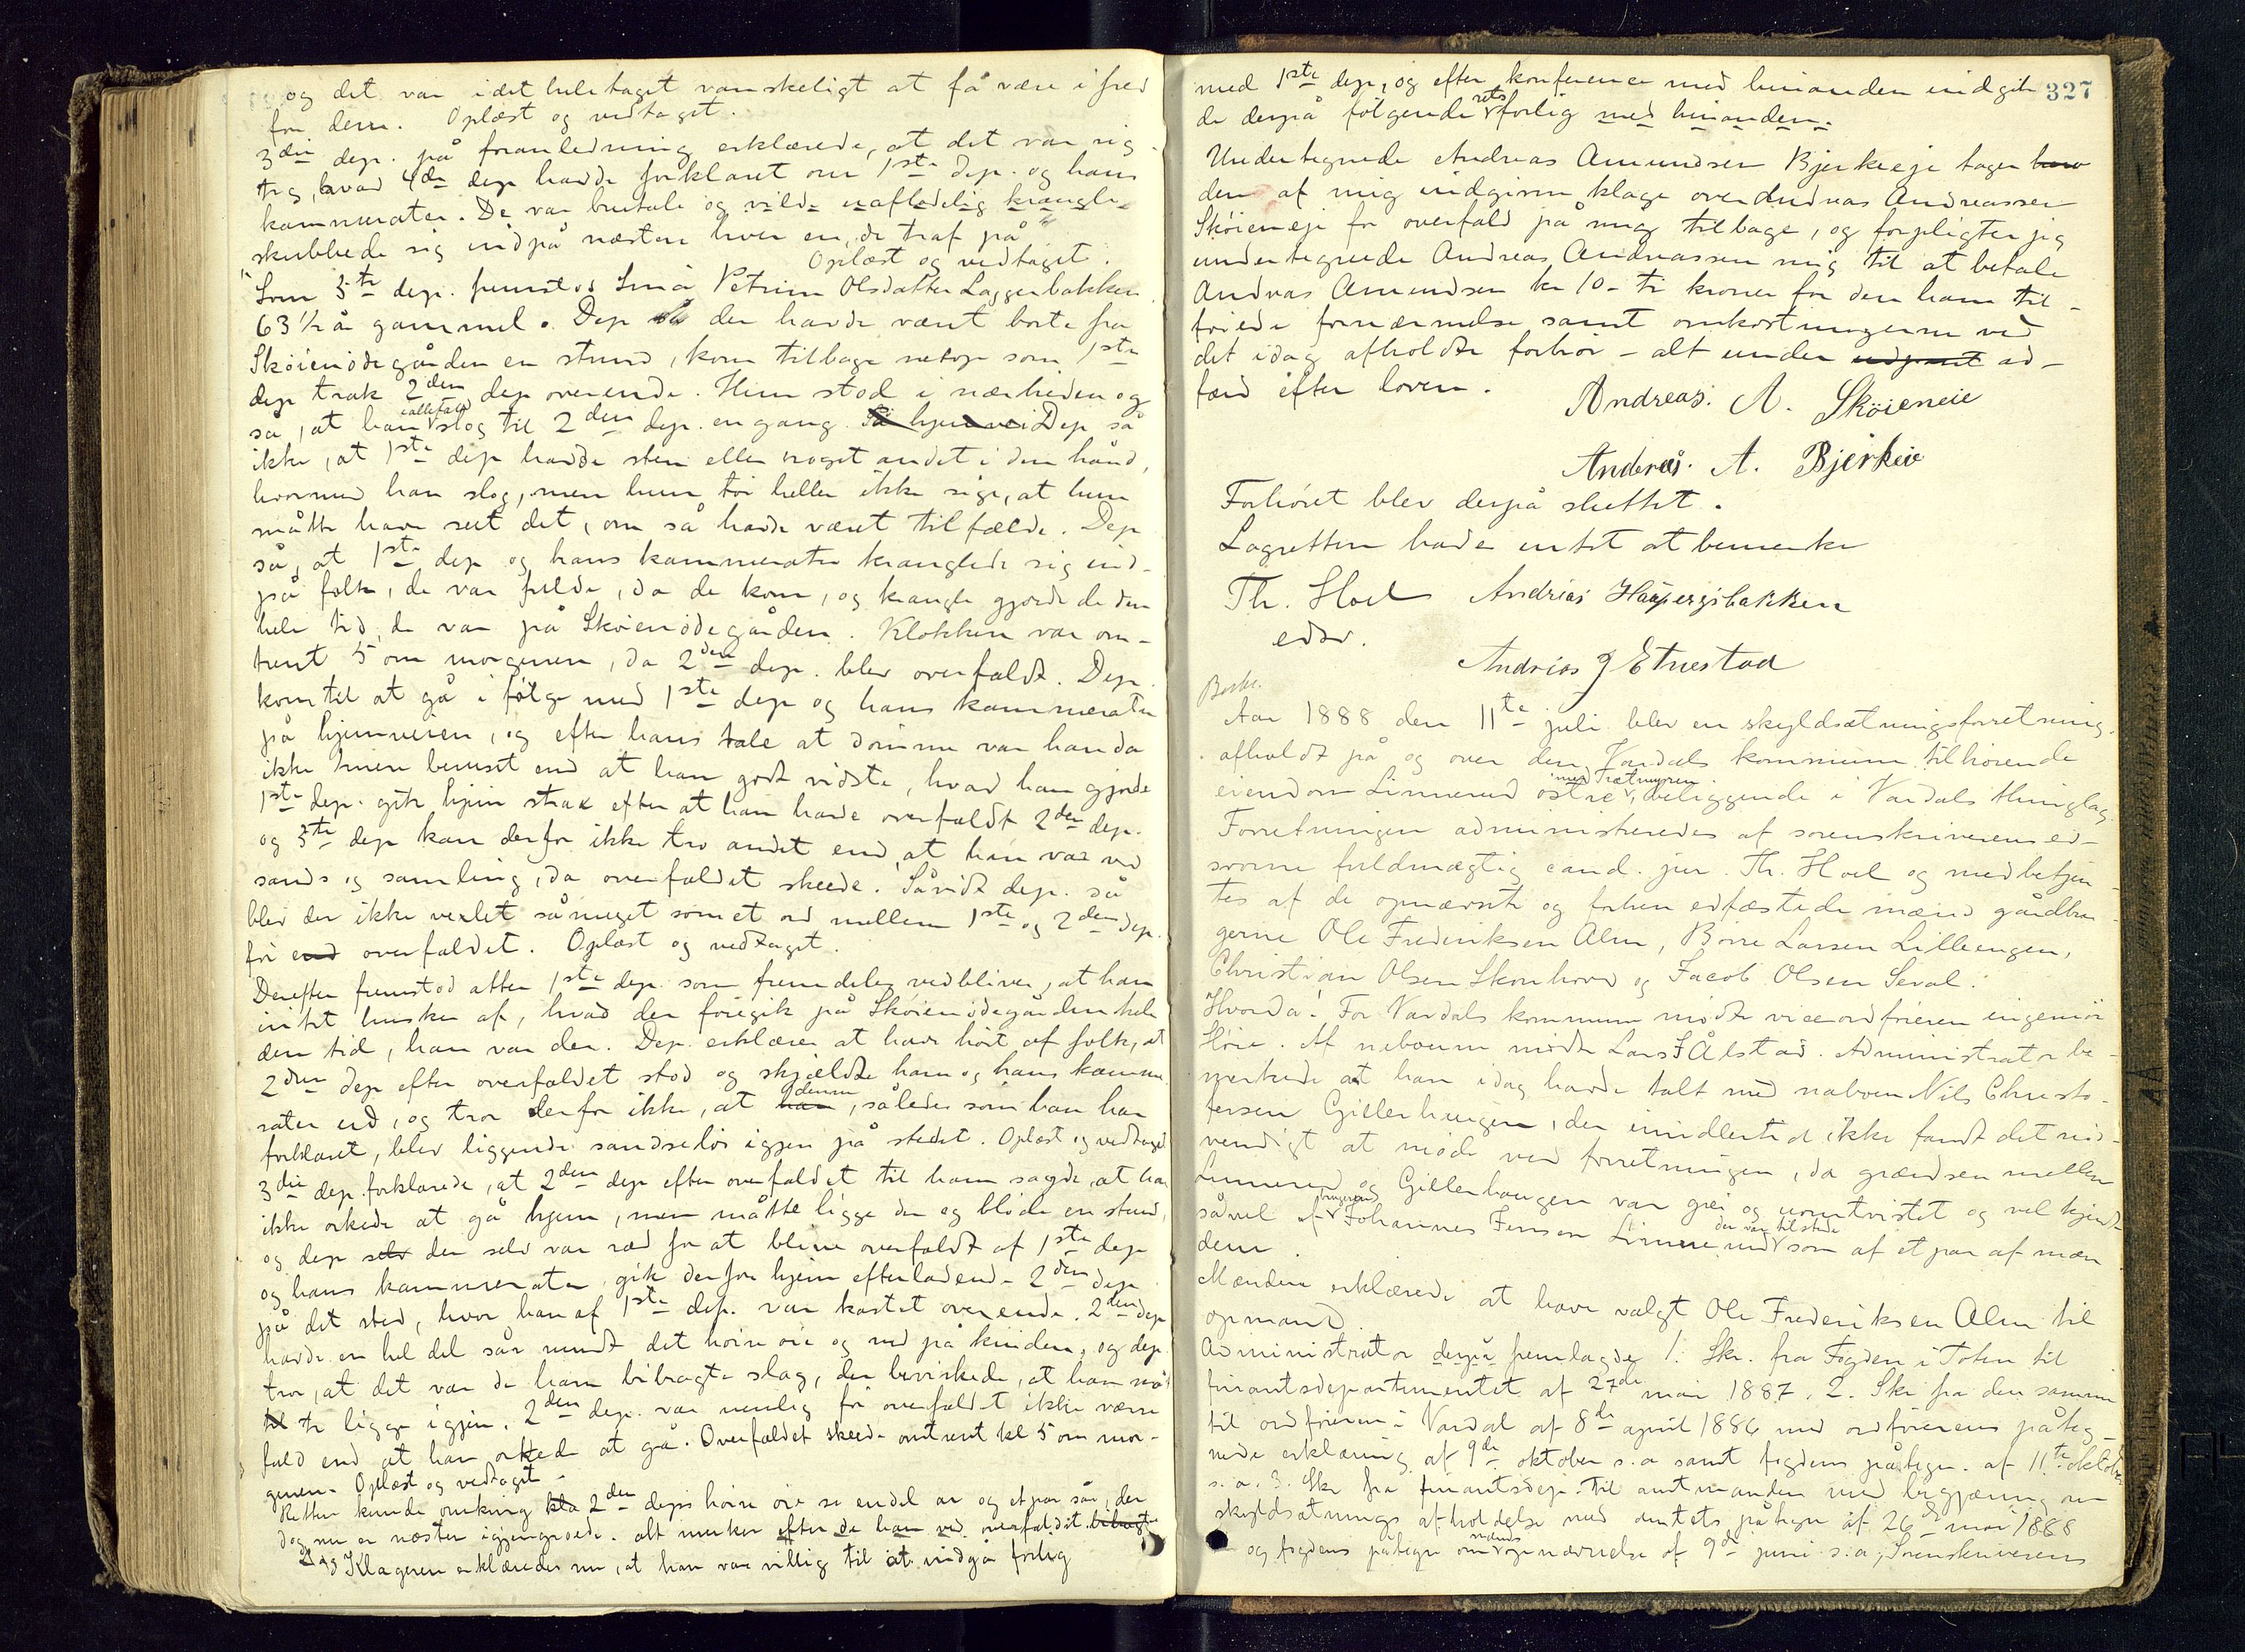 og det var idethele taget vanskeligt at få være i fred
for dem. Oplæst og vedtaget.
3die dep. på foranledning erklærede, at det var rig-
tig, hvad 4de dep havde forklaret om 1ste dep. og hans
kammerater. De var brutale og vilde uafladelig krangle
skubbede sig indpå næsten hver en, de traf på
Oplæst og vedtaget.
Som 5te dep. fremstod Petrine Olsdatter Laggerbakken
63 1/2 år gammel. Dep der havde været borte fra
Skøienødegården en stund, kom tilbage netop som 1ste
dep trak 2den dep overende. Hun stod i nærheden og
så, at han ialfald slog til 2den dep. en gang. Dep så
ikke, at 1ste dep havde sten eller noget andet i den hånd,
hvormed han slog, men hun tør heller ikke sige, at hun
måtte have seet det, om så havde været tilfælde. Dep
så, at 1ste dep og hans kammerater kranglede sig ind-
på folk, de var fulde, da de kom, og krangle gjorde de den
hele tid, de var på Skøienødegården. Klokken var om-
trent 5 om morgenen, da 2den dep. blev overfaldt. Dep.
kom til at gå i følge med 1ste dep og hans kammerater
på hjemveien, og efter hans tale at dømme var han da
ikke mere beruset end at han godt vidste, hvad han gjorde
1ste dep. gik hjem strax efter at han havde overfaldt 2den dep.
og 5te dep kan derfor ikke tro andet end at han var ved
sands og samling, da overfaldet skeede. Såvidt dep. så
blev der ikke vexlet såmeget som et ord mellem 1ste og 2den dep.
før end overfaldet. Oplæst og vedtaget.
Derefter fremstod atter 1ste dep. som fremdeles vedbliver, at han
intet husker af, hvad der foregik på Skøienødegården hele
den tid, han var der. Dep. erklærer at have hørt af folk, at
2den dep efter overfaldet stod og skjældte ham og hans kamme-
rater ud, og tror derfor ikke, at han denne, således som han har
forklaret, blev liggende sandseløs igjen på stedet. Oplæst og vedtaget
3die dep. forklarede, at 2den dep efter overfaldet til ham sagde, at han
ikke orkede at gå hjem, men måtte ligge der og bløde en stund,
og dep selv der selv var ræd for at blive overfaldt af 1ste dep
og hans kammerater, gik derfor hjem efterladende 2den dep
på det sted, hvor han af 1ste dep. var kastet overende. 2den dep
havde en hel del sår rundt det høire øie og ned på kinden, og dep
tror, at det var de ham bibragte slag, der bevirkede, at han måt
til te ligge igjen. 2den dep. var nemlig før overfaldet ikke værre
fuld end at han orkede at gå. Overfaldet skeede omtrent kl 5 om mor-
genen. Oplæst og vedtaget
Retten kunde omkring 2den deps høire øie se endel ar og et par sår, der
dog nu er næsten igjengroede. alt merker efter de ham ved overfaldet bibragte
slag Klageren erklærede nu, at han var villig til at indgå forlig
327
med 1ste dep, og efter konference med hinanden indgik
de derpå følgende rets forlig med hinanden.
Undertegnede Andreas Amundsen Bjerkeeje tager
den af mig indgivne klage over Andreas Andreassen
Skøieneje for overfald på mig tilbage, og forpligter jeg
undertegnede Andreas Andreassen mig til at betale
Andreas Amundsen kr 10 - ti kroner for den ham til-
føiede fornærmelse samt omkostningerne ved
det idag afholdte forhør - alt under ad-
færd efter loven.
Andreas. A. Skøieneie
Andreas. A. Bjerkeie
Forhøret blev derpå sluttet.
Lagretten havde intet at bemerke
Th. Hoel Andreas Haugersbakken
edsv.
Andreas J Etnestad
Beskr.
Aar 1888 den 11te juli blev en skyldsætningsforretning
afholdt på og over den Vardals kommune tilhørende
eiendom Linnerud østre med Trætmyren, beliggende i Vardals thinglag.
Forretningen administreredes af sorenskriverens ed-
svorne fuldmægtig cand. jur. Th. Hoel og medbetjen-
tes af de opnævnte og forhen edfæstede mænd gårdbru-
gerne Ole Frederiksen Alm, Børre Larsen Lilleengen,
Christian Olsen Skonhovd og Jacob Olsen Seval.
Hvorda: For Vardals kommune mødte viceordføreren ingeniør
Høie. Af naboerne mødte Lars J Ålstad. Administrator be-
merkede at han idag havde talt med naboen Nils Christo-
fersen Gillerhaugen, der imidlertid ikke fandt det nød-
vendigt at møde ved forretningen, da grændsen mellem
Linnerud og Gillerhaugen var grei og uomtvistet og vel kjendt
såvel af brugeren Johannes Jensen Linnerud der var tilstede som af et par af mæn
dene.
Mændene erklærede at have valgt Ole Frederiksen Alm til
opmand.
Administrator derpå fremlagde 1. Skr. fra Fogden i Toten til
finantsdepartementet af 27de mai 1887. 2. Skr fra den samme
til ordføreren i Vardal af 8de april 1886 med ordførerens påteg-
nede erklæring af 9de oktober s.a samt fogdens påtegn. af 11te oktober
s.a. 3. Skr fra finantsdep. til amtmanden med begjæring om
skyldsætnings afholdelse med amtets påtegn af 26de mai 1888
og fogdens påtegn om mænds opnævnelse af 9de juni s.a, Sorenskriverens